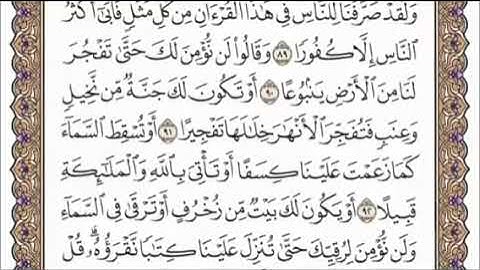 وَلَقَدْ صَرَّفْنَا لِلنَّاسِ فِي هَٰذَا ٱلْقُرْءَانِ مِن كُلِّ مَثَلٍ فَأَبَىٰٓ أَكْثَرُ
ٱلنَّاسِ إِلَّا كُفُورًا ٨٩ وَقَالُوا۟ لَن نُّؤْمِنَ لَكَ حَتَّىٰ تَفْجُرَ
لَنَا مِنَ ٱلْأَرْضِ يَنۢبُوعًا ٩٠ أَوْ تَكُونَ لَكَ جَنَّةٌ مِّن نَّخِيلٍ
وَعِنَبٍ فَتُفَجِّرَ ٱلْأَنْهَٰرَ خِلَٰلَهَا تَفْجِيرًا ٩١ أَوْ تُسْقِطَ ٱلسَّمَآءَ
كَمَا زَعَمْتَ عَلَيْنَا كِسَفًا أَوْ تَأْتِيَ بِٱللَّهِ وَٱلْمَلَٰٓئِكَةِ
قَبِيلًا ٩٢ أَوْ يَكُونَ لَكَ بَيْتٌ مِّن زُخْرُفٍ أَوْ تَرْقَىٰ فِي ٱلسَّمَآءِ
وَلَن نُّؤْمِنَ لِرُقِيِّكَ حَتَّىٰ تُنَزِّلَ عَلَيْنَا كِتَٰبًا نَّقْرَؤُهُۥ ۗ قُلْ